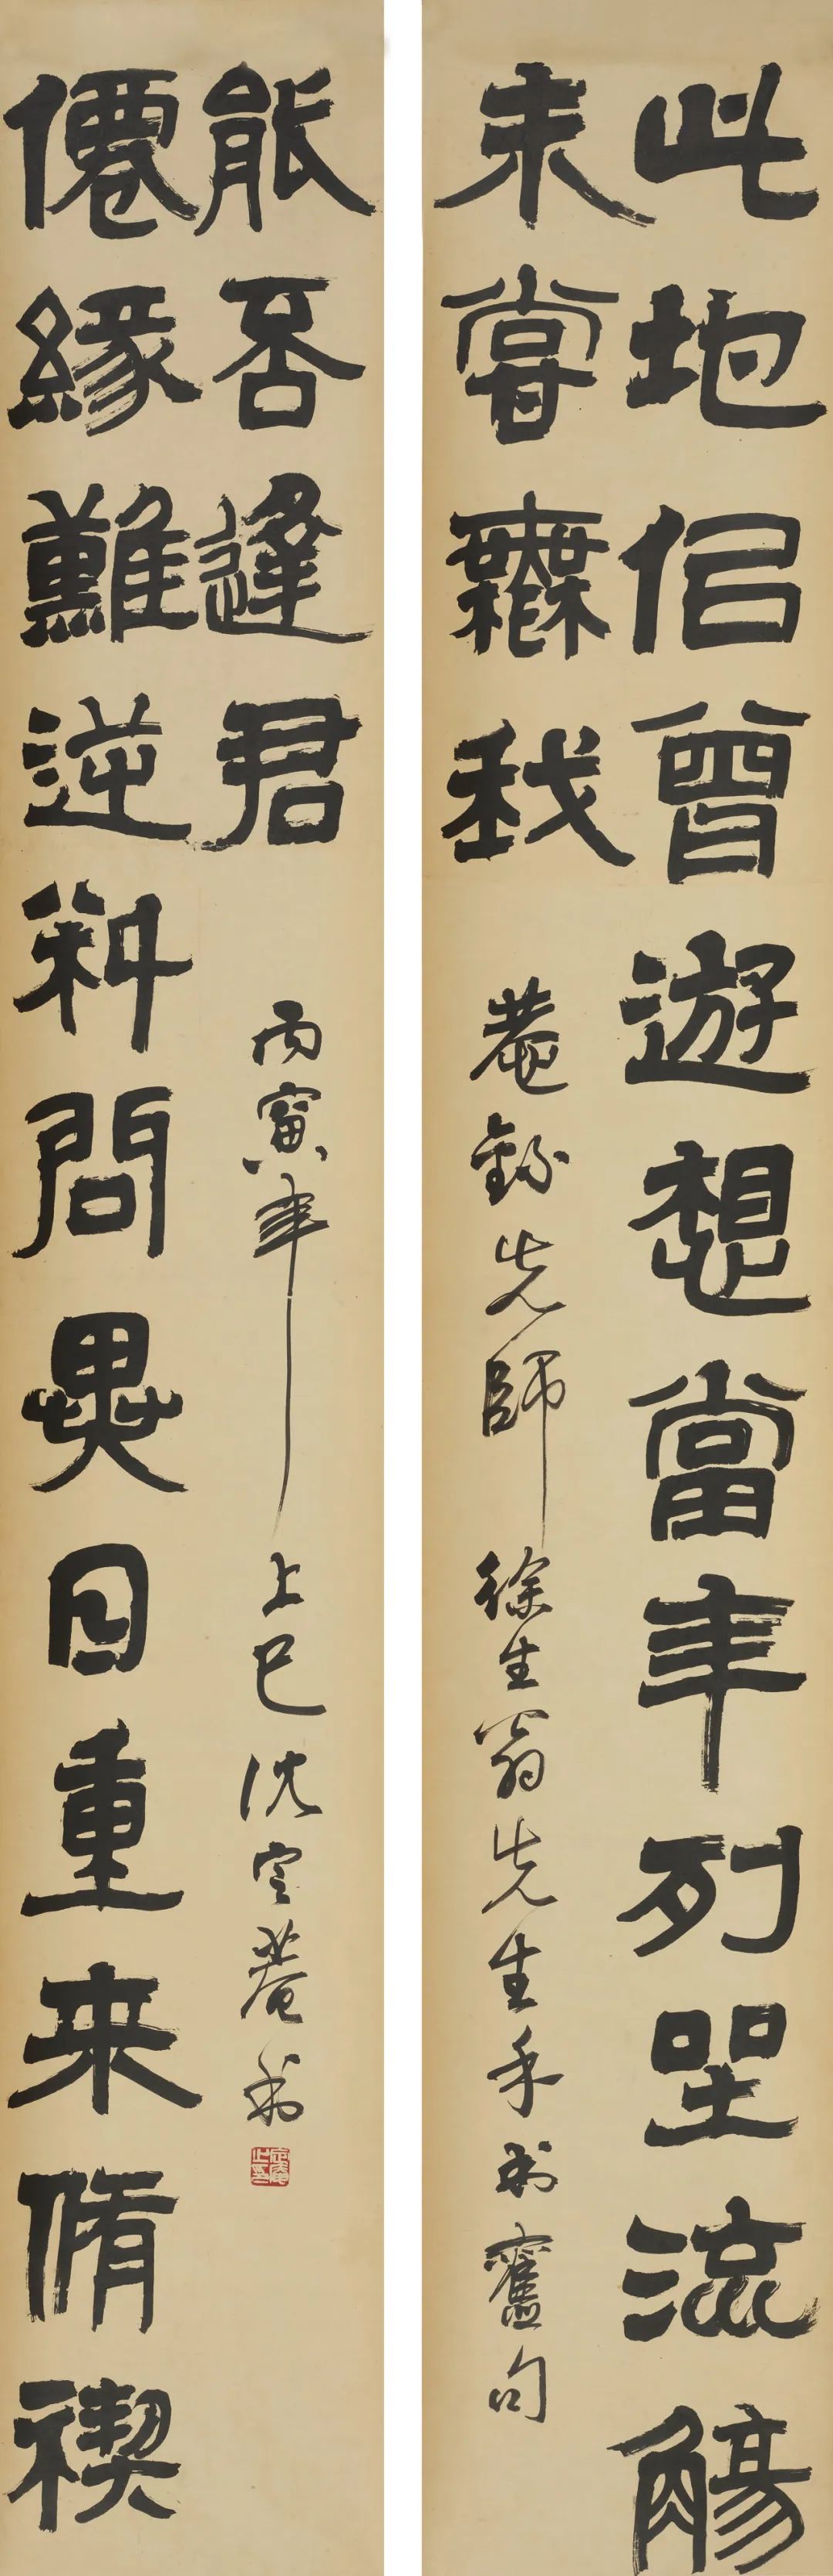 此地佀曾遊想當年列坐流觴
未嘗橆我
菴錄先師徐生翁先生手書舊句
僊緣難逆料問異日重来脩禊
能否逢君
丙寅年上巳沈定菴書